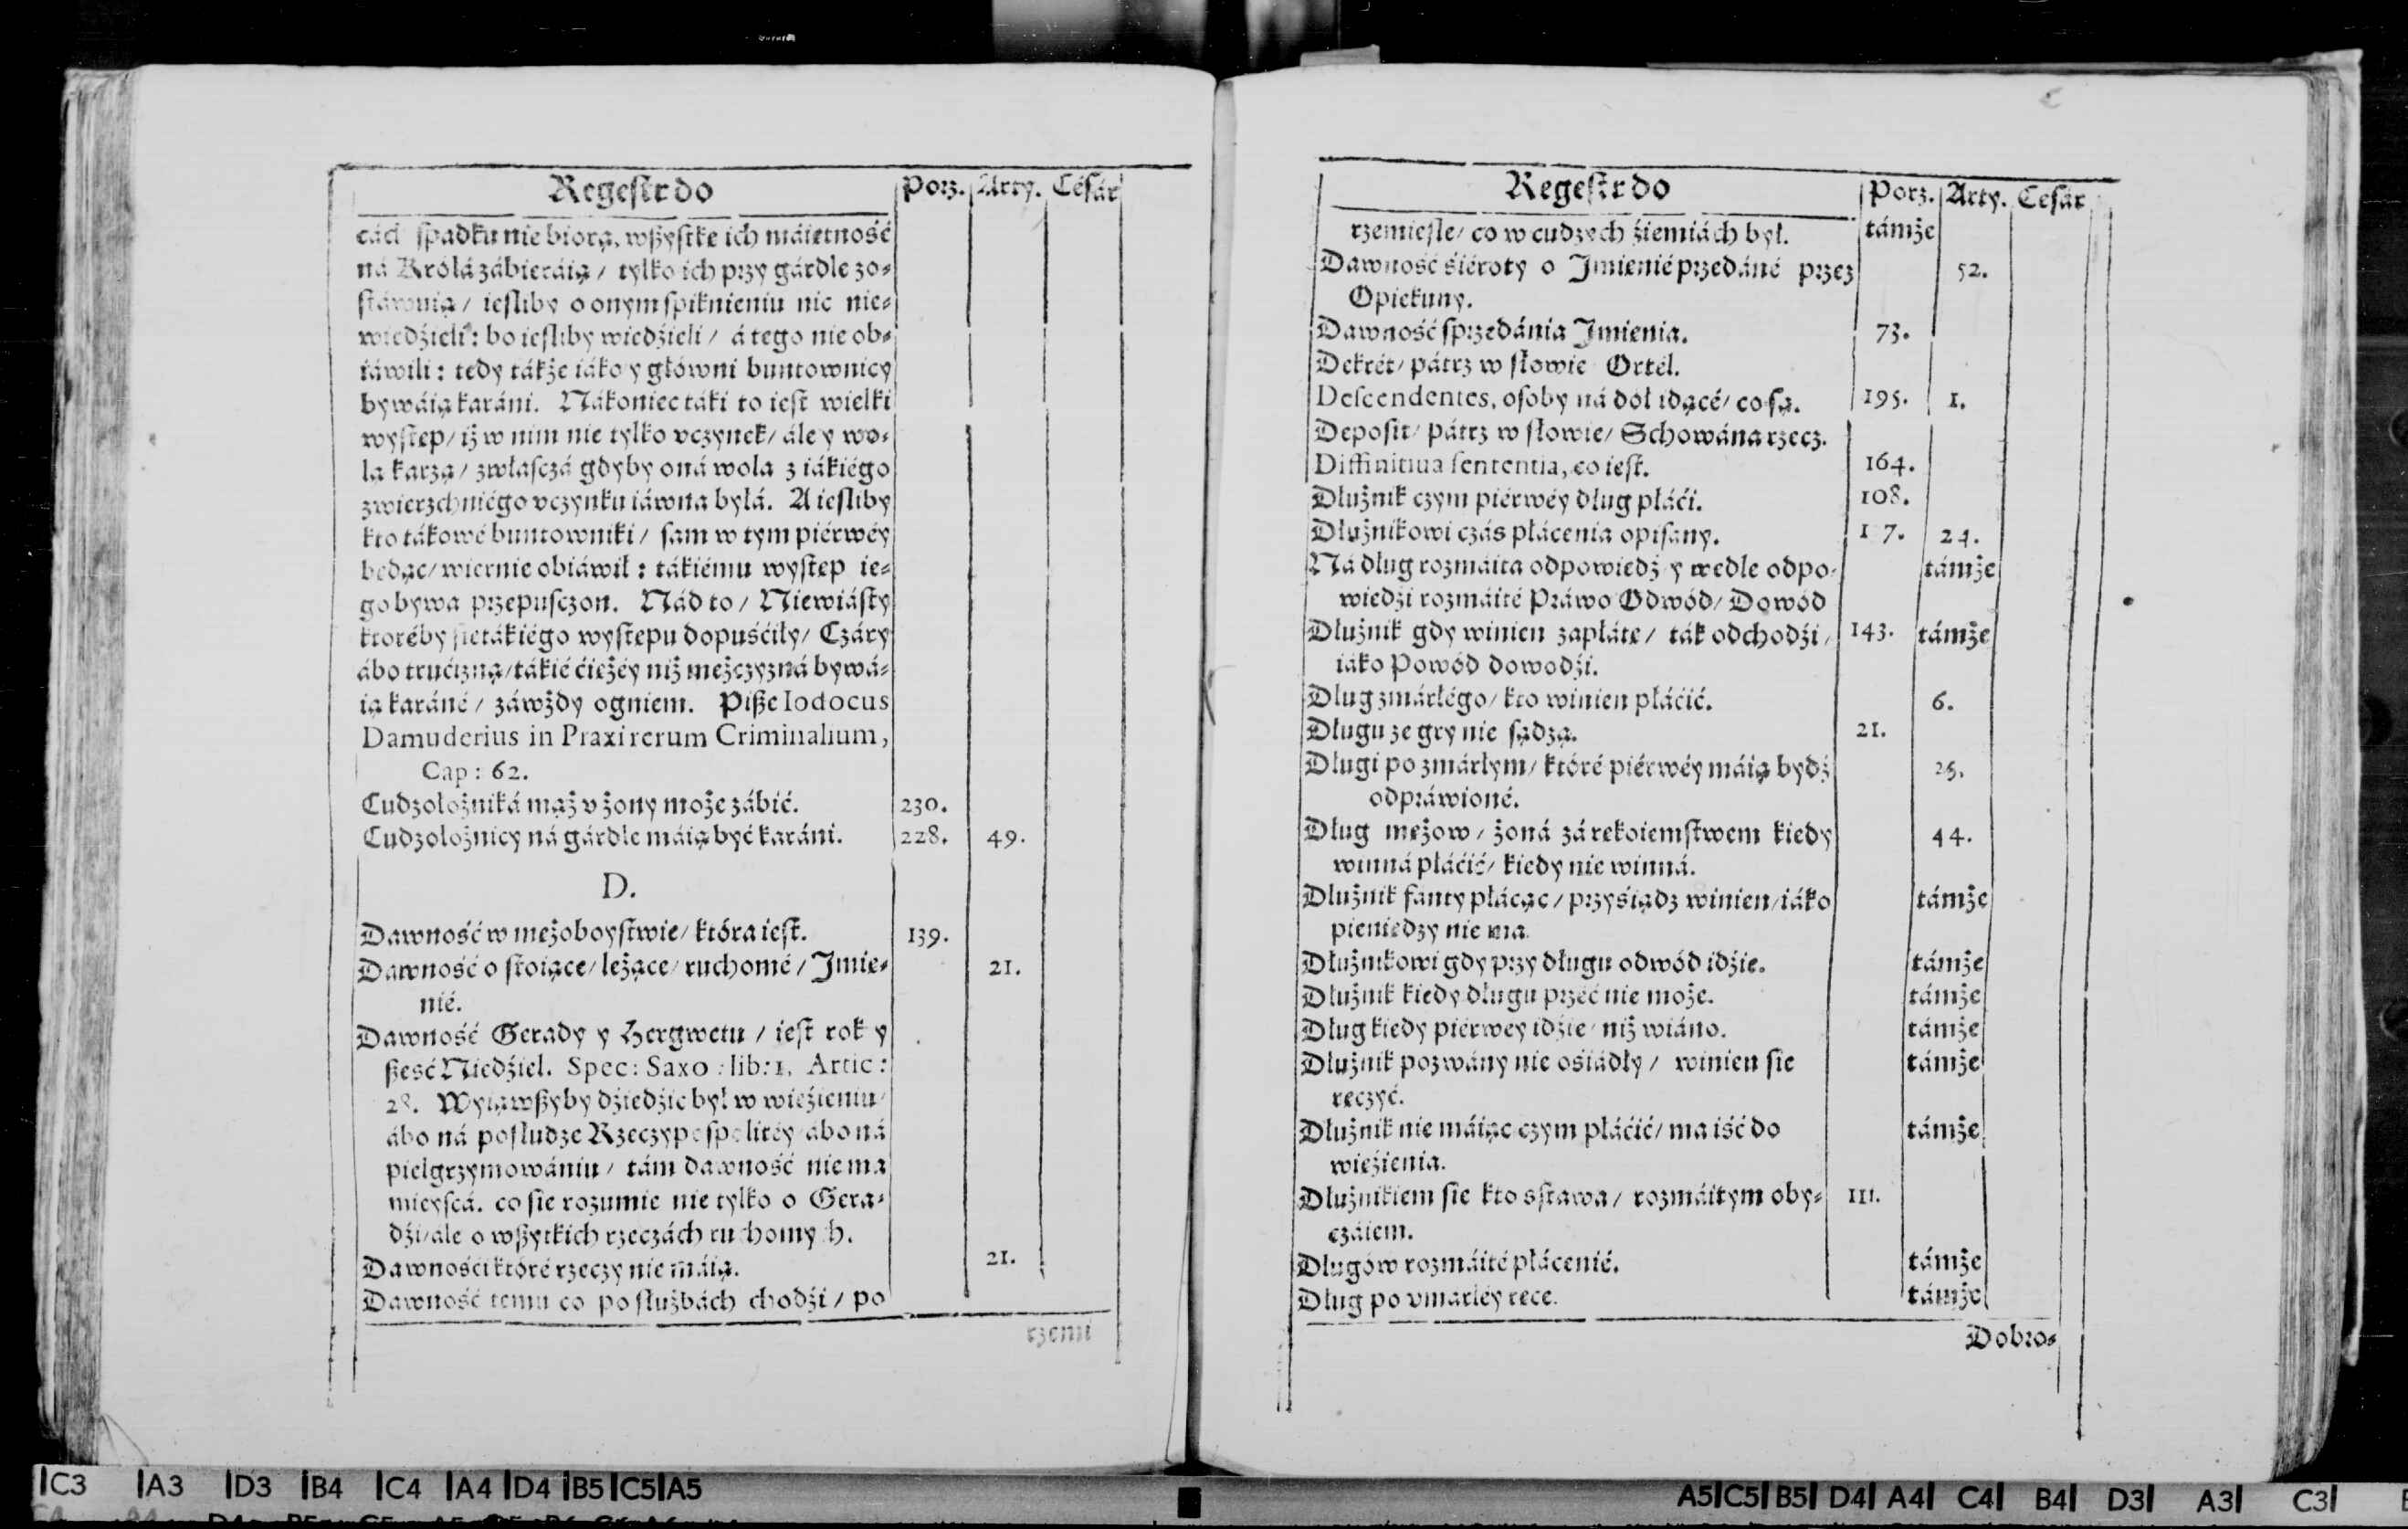 Regestr do Porz. Arty. Césár
spadku nie biorą, wßystkę ich máiętność
ná Królá zábieráią / tylko ich przy gárdle zo-
stáwuią / iesliby o onym spiknieniu nic nie-
wiedźieli: bo iesliby wiedźieli / á tego nie ob-
iáwili: tedy tákże iáko y główni buntownicy
bywáią karáni. Nákoniec táki to iest wielki
występ / iż w nim nie tylko vczynek / ále y wo-
la karzą / zwłasczá gdyby oná wola z iákiégo
zwierzchniégo vczynku iáwna byłá. A iesliby
kto tákowé buntowniki / sam w tym piérwéy
będąc / wiernie obiáwił: tákiému występ ie-
go bywa przepusczon. Nád to / Niewiásty
któréby się tákiégo występu dopuśćiły / Czáry
ábo trućizną / tákié ćiężéy niż mężczyzná bywá-
ią karáné / záwżdy ogniem. Piße Iodocus
Damuderius in Praxi rerum Criminalium,
Cap: 62.
Cudzołożniká mąż v żony może zábić. 230.
Cudzołożnicy ná gárdle máią być karáni. 228. 49.
D.
Dawność w mężoboystwie / która iest. 139.
Dawność o stoiące / leżące / ruchomé / Imie- 21.
nié.
Dawność Gerady y Hergwetu / iest rok y
ßesć Niedźiel. Spec: Saxo: lib: 1. Artic:
28. Wyiąwßyby dźiedźic był w więźieniu /
ábo ná posłudze Rzeczypospolitéy / ábo ná
pielgrzymowániu / tám dawność nie ma
mieyscá. co się rozumie nie tylko o Gera-
dźi / ále o wßytkich rzeczách ruchomych.
Dawnośći któré rzeczy nie máią. 21.
Dawność temu co po służbách chodźi / po
rzemi
Regestr do Porz. Arty. Césár
rzemieśle / co w cudzych źiemiách był. támże
Dawność śiéroty o Imienié przedáné przez 52.
Opiekuny.
Dawność sprzedánia Imienia. 73.
Dekrét / pátrz w słowie Ortél.
Descendentes, osoby ná dół idącé / co są. 195. 1.
Deposit / pátrz w słowie / Schowána rzecz.
Diffinitiua sententia, co iest. 164.
Dłużnik czym piérwéy dług płáći. 108.
Dłużnikowi czás płácenia opisany. 24.
Ná dług rozmáita odpowiedź y wedle odpo- támże
wiedźi rozmáité Práwo Odwód / Dowód
Dłużnik gdy winien zapłátę / ták odchodźi / 143. támże
iáko Powód dowodźi.
Dług zmárłégo / kto winien płáćić. 6.
Długu ze gry nie sądzą. 21.
Długi po zmárłym / któré piérwéy máią bydź 25.
odpráwioné.
Dług mężow / żoná zá rękoiemstwem kiedy 44.
winná płáćić / kiedy nie winná.
Dłużnik fanty płácąc / przyśiądz winien / iáko támże
pieniędzy nie ma.
Dłużnikowi gdy przy długu odwód idźie. támże
Dłużnik kiedy długu przéć nie może. támże
Dług kiedy piérwéy idźie / niż wiáno. támże
Dłużnik pozwány nie ośiádły / winien się támże
ręczyć.
Dłużnik nie máiąc czym płáćić / ma iść do támże
więźienia.
Dłużnikiem się kto sstawa / rozmáitym oby- 111.
czáiem.
Długów rozmáité płácenié. támże
Dług po vmárłéy ręce. támże
Dobro-
C3 A3 D3 B4 C4 A4 D4 B5 C5 A5
A5 C5 B5 D4 A4 C4 B4 D3 A3 C3